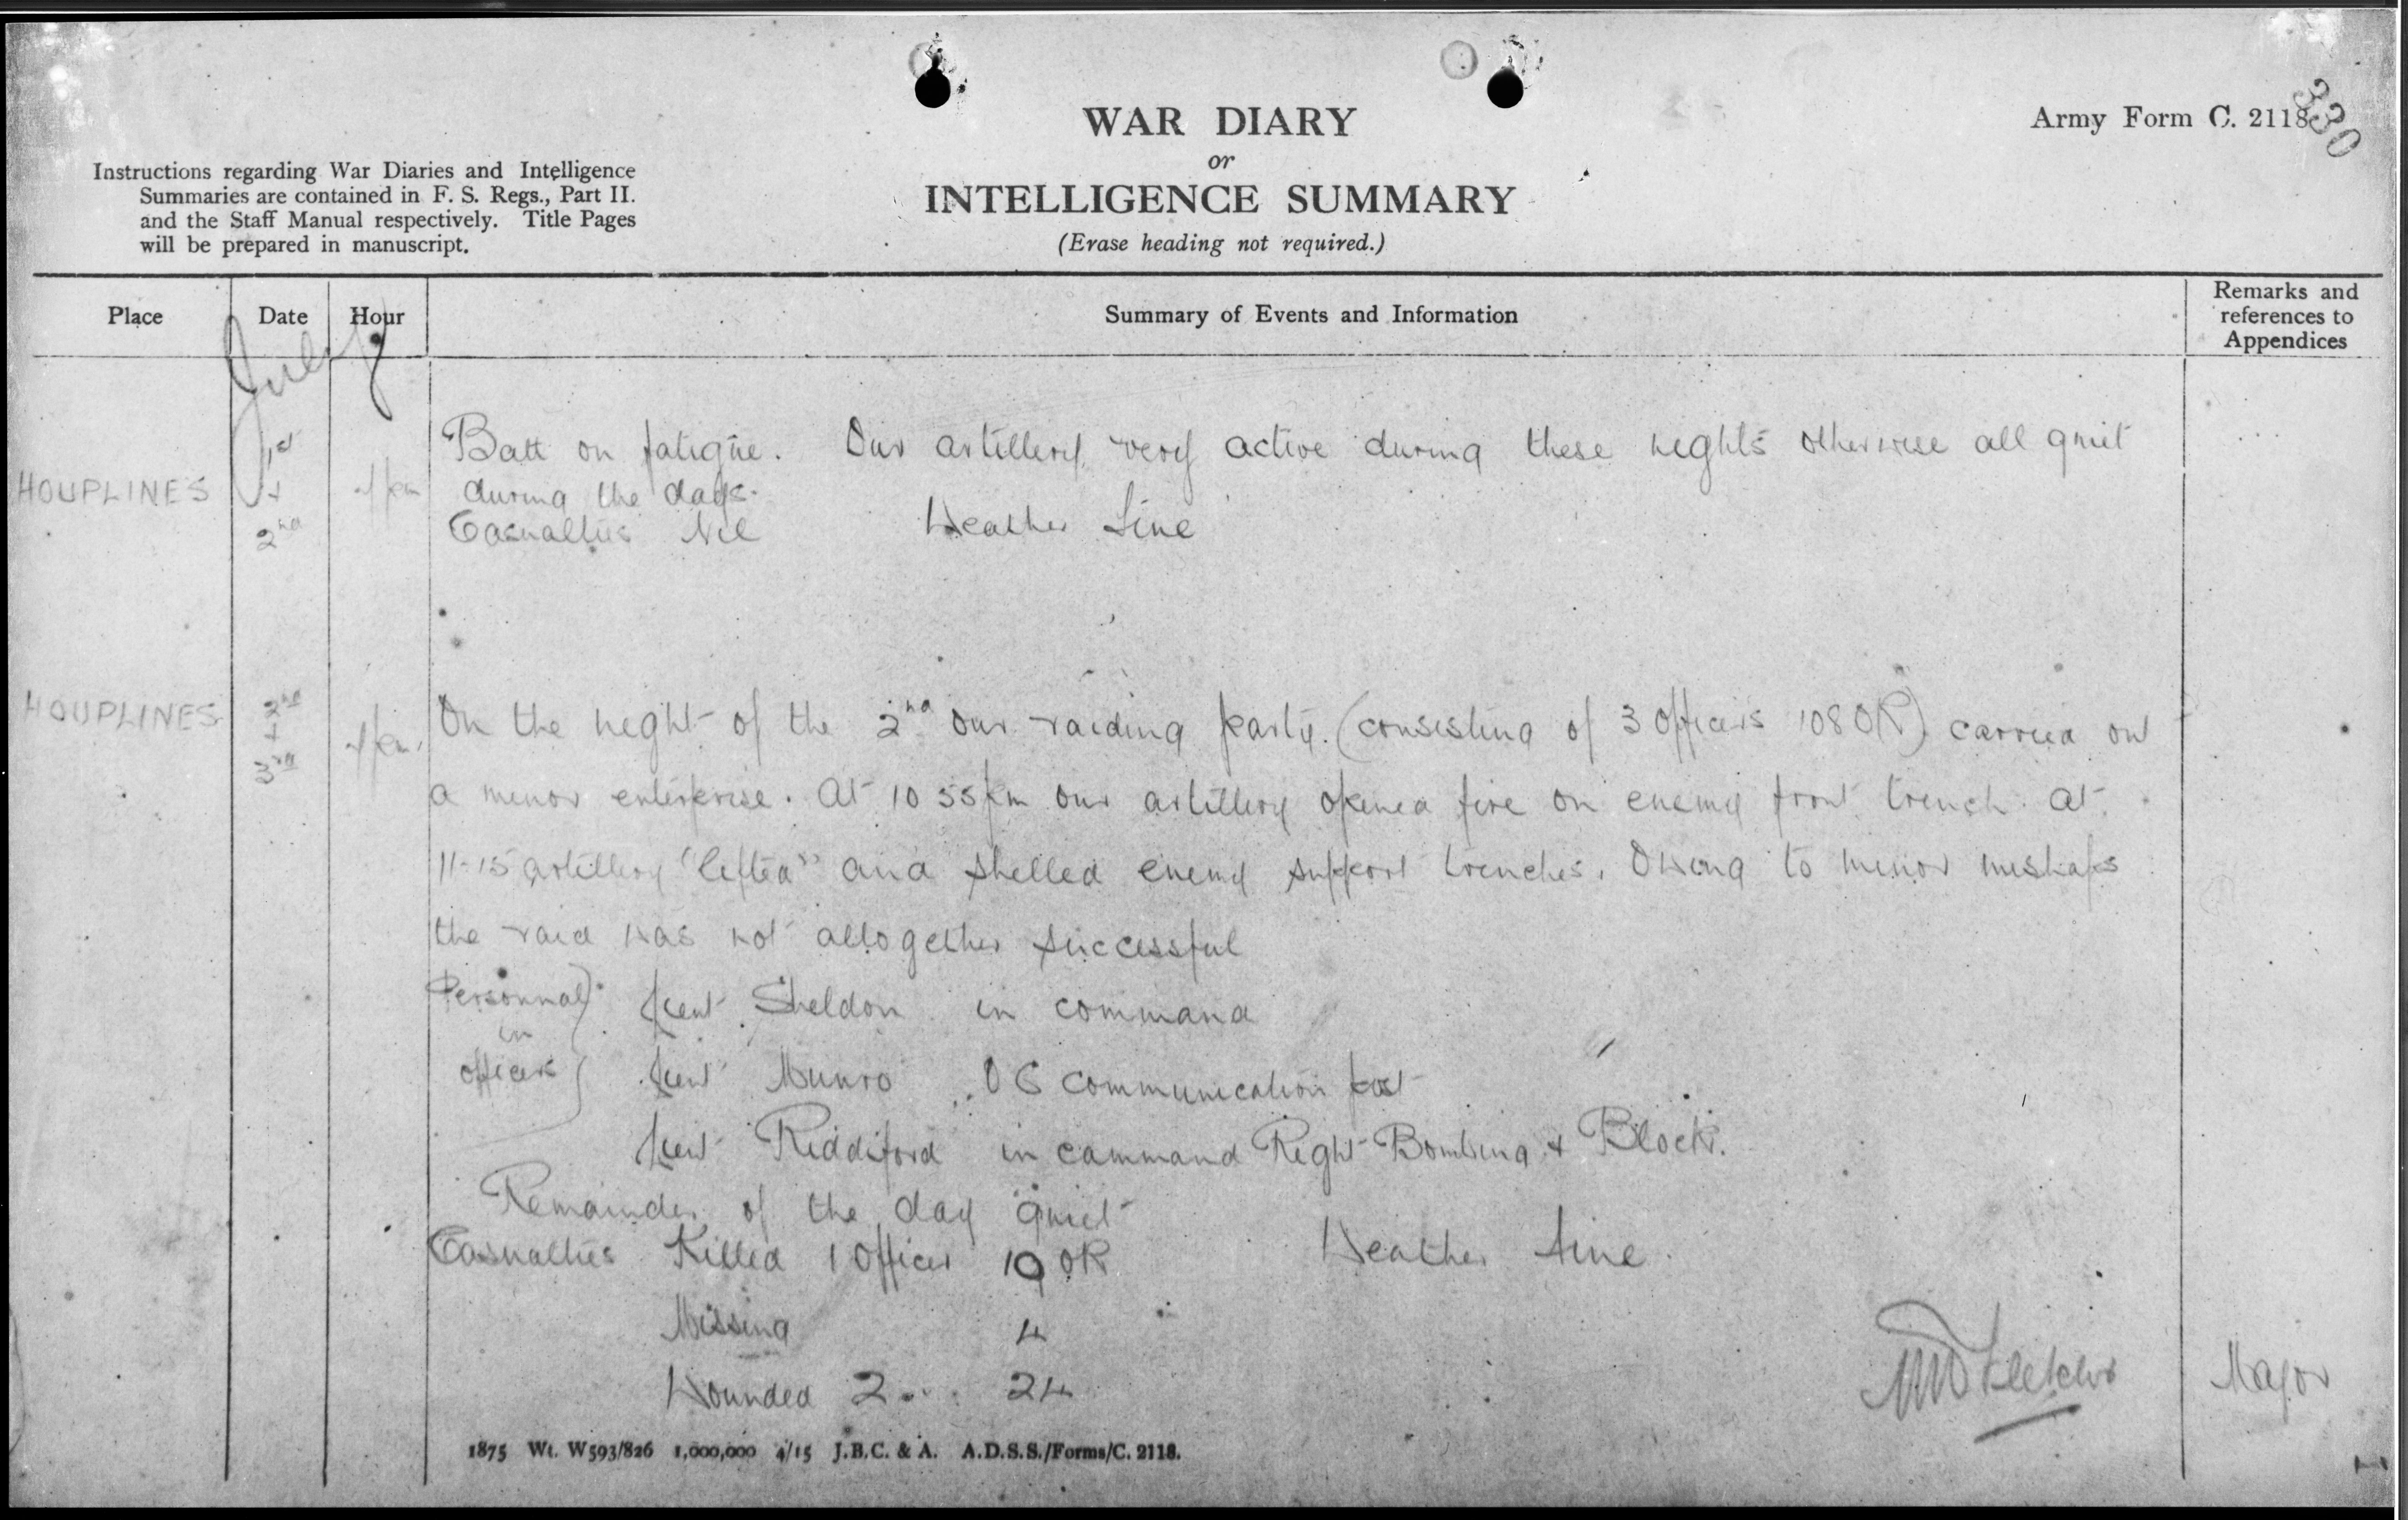 330
Army Form C. 2118
WAR DIARY
or
INTELLIGENCE SUMMARY
(Erase heading not required.)
Instructions regarding War Diaries and Intelligence
Summaries are contained in F. S. Regs., Part II.
and the Staff Manual respectively. Title Pages
will be prepared in manuscript.
Place Date Hour Summary of Events and Information Remarks and references to Appendices
July
HOUPLINES 1st + 2nd 4pm
Batt on fatigue. Our artillery very active during these nights otherwise all quiet
during the days.
Casualties Nil Weather Fine
HOUPLINES 2nd + 3rd 4pm.
On the night of the 2nd our raiding party. (consisting of 3 Officers 108 OR) carried out
a minor enterprise. At 10 55pm our artillery opened fire on enemy front trench. At
11-15 artillery "lifted" and shelled enemy support trenches. Owing to minor mishaps
the raid was not altogether successful
Personnal in officers } Lieut Sheldon in command
Lieut Munro OC communication post
Lieut Riddiford in cammand Right Bombing + Block.
Remainder of the day quiet
Casualties Killed 1 Officer 10 OR Weather fine.
Missing 4
Wounded 2 24
Fletcher Major
1875 Wt. W593/826 1,000,000 4/15 J.B.C. & A. A.D.S.S./Forms/C. 2118.